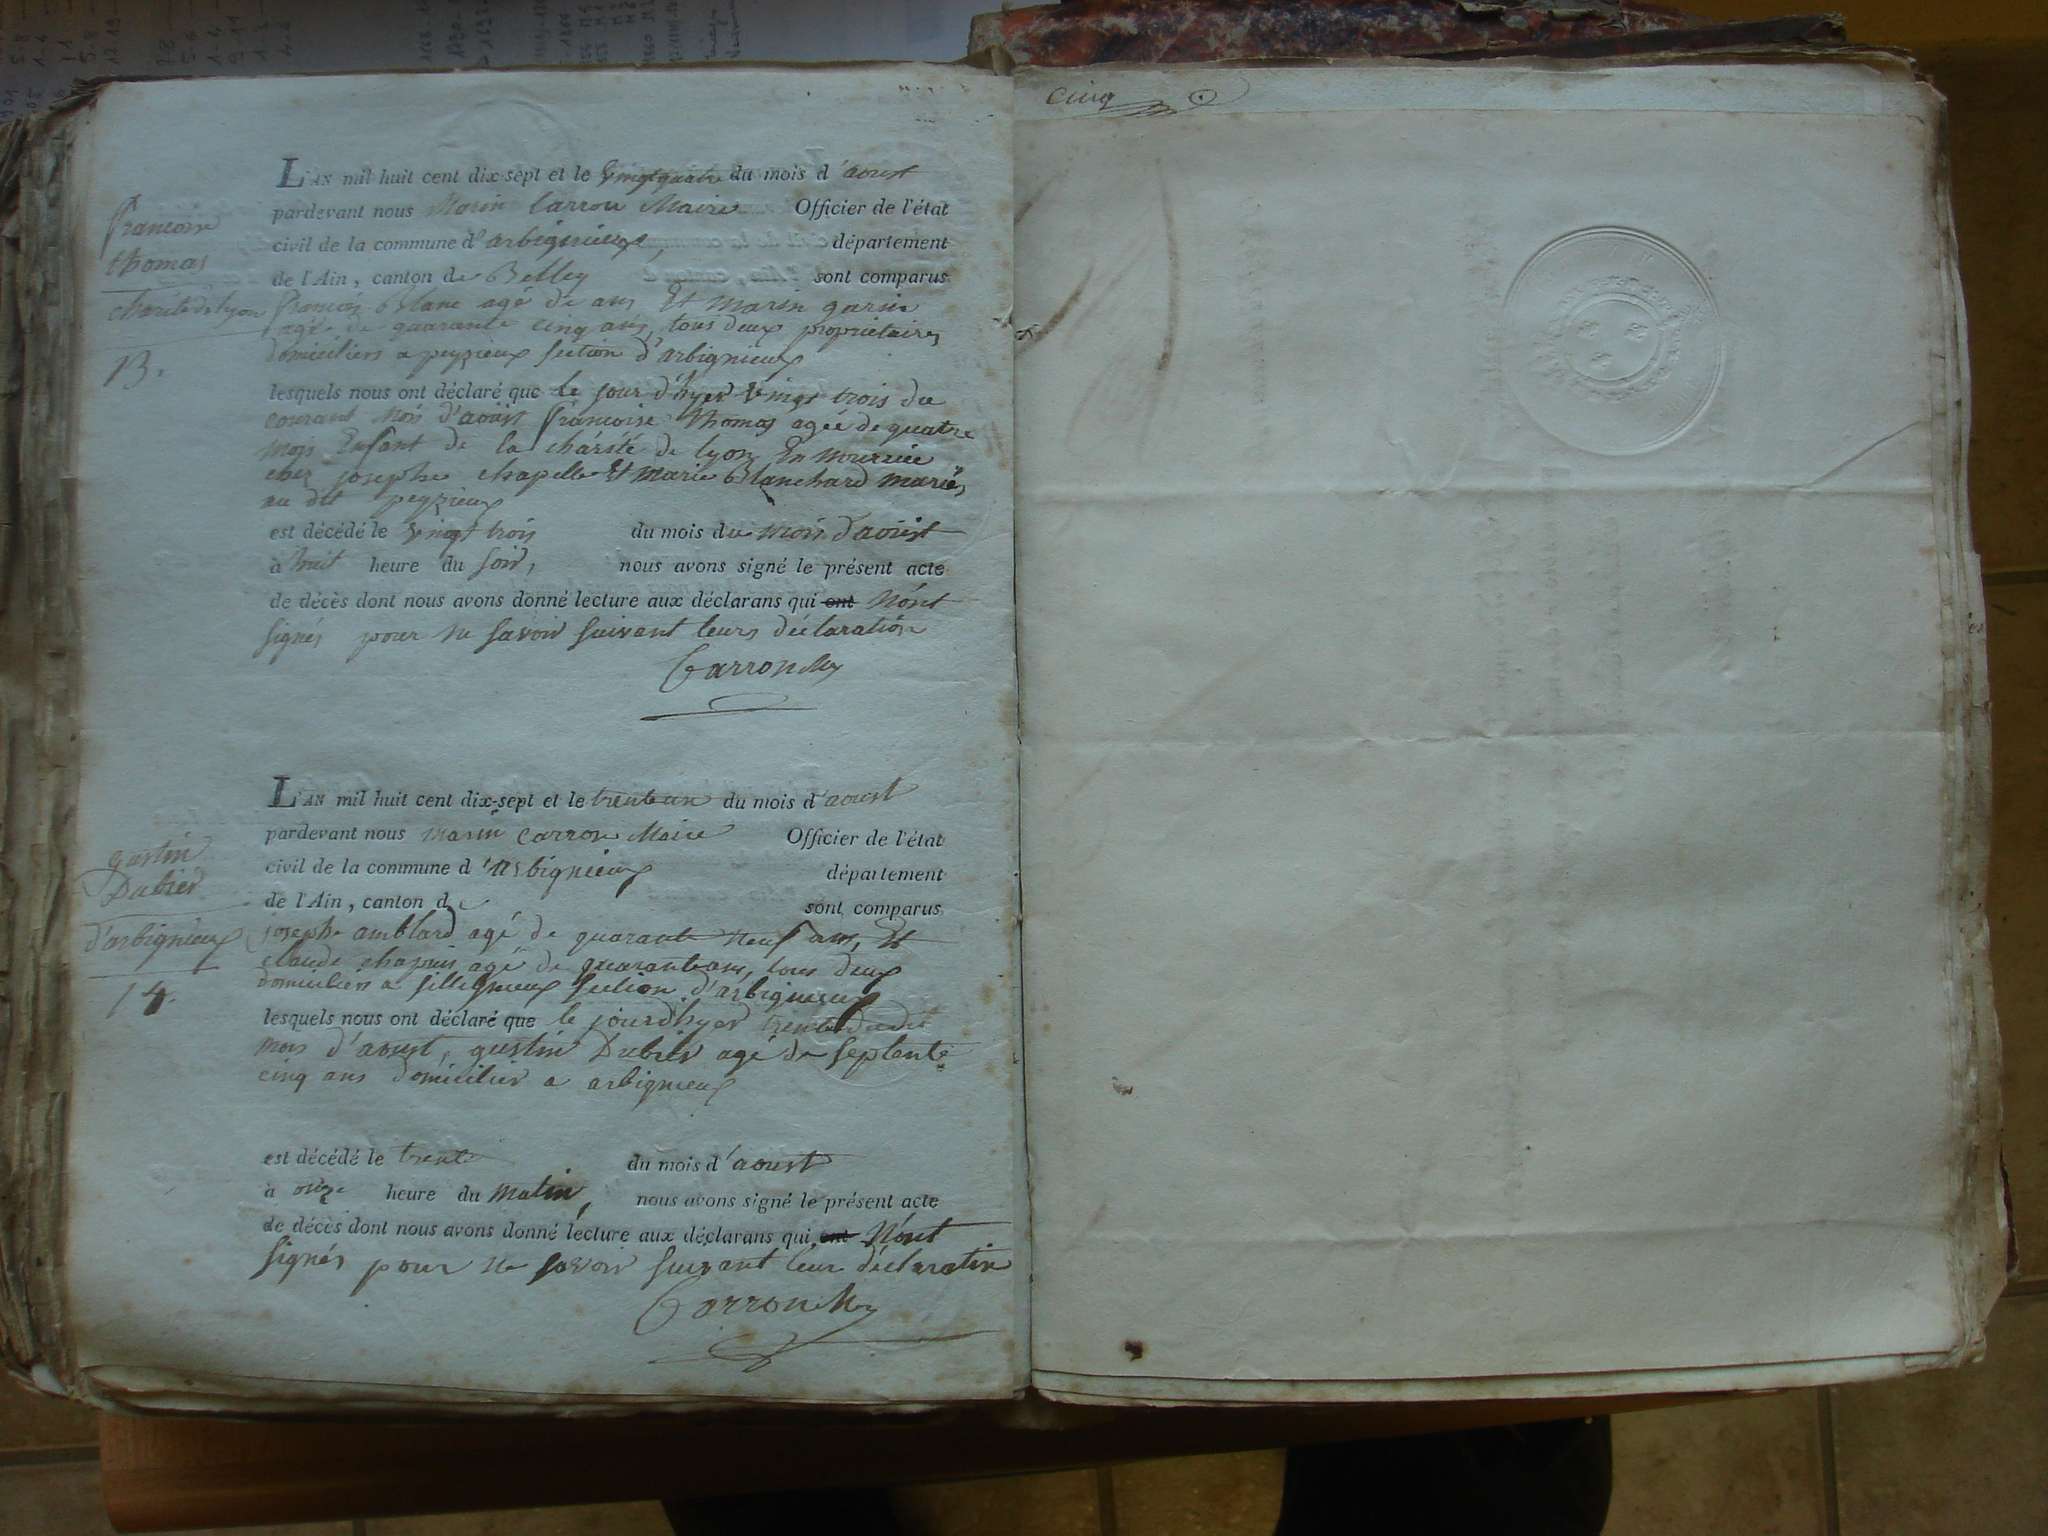 francoise
thomas
charité de lyon
13.
L'AN mil huit cent dix-sept et le vingt quatre du mois d'aoust
pardevant nous Marin Carron Maire Officier de l'état
civil de la commune d'arbignieux, département
de l'Ain, canton de Belley sont comparus
françois Blanc agé de ans Et marin garin
agé de quarante cinq ans, tous deux propriétaires
domiciliers a peyzieux section d'arbignieux
lesquels nous ont déclaré que le jour d'hyer vingt trois du
courant mois d'aoust françoise Thomas agée de quatre
mois Enfant de la charité de lyon En nourrice
chez josephe chapelle Et marie Blanchard mariés
au dit peyzieux
est décédé le vingt trois du mois du mois d'aoust
à huit heure du soir, nous avons signé le présent acte
de décès dont nous avons donné lecture aux déclarans qui ont N'ont
signés pour ne savoir suivant leurs déclaration
Carron
gustin
Dubier
d'arbignieux
14.
L'AN mil huit cent dix-sept et le trente un du mois d'aoust
pardevant nous marin carron Maire Officier de l'état
civil de la commune d'arbignieux département
de l'Ain, canton de sont comparus
josephe amblard agé de quarante neuf ans, Et
claude chapuis agé de quarante ans, tous deux
domiciliers a sillignieux section d'arbignieux
lesquels nous ont déclaré que le jourdhyer trente dudit
mois d'aoust, gustin Dubier agé de septente
cinq ans domicilier a arbignieux
est décédé le trente du mois d'aoust
à onze heure du matin, nous avons signé le présent acte
de décès dont nous avons donné lecture aux déclarans qui ont N'ont
signés pour ne savoir suivant leur déclaration
Carron
cinq